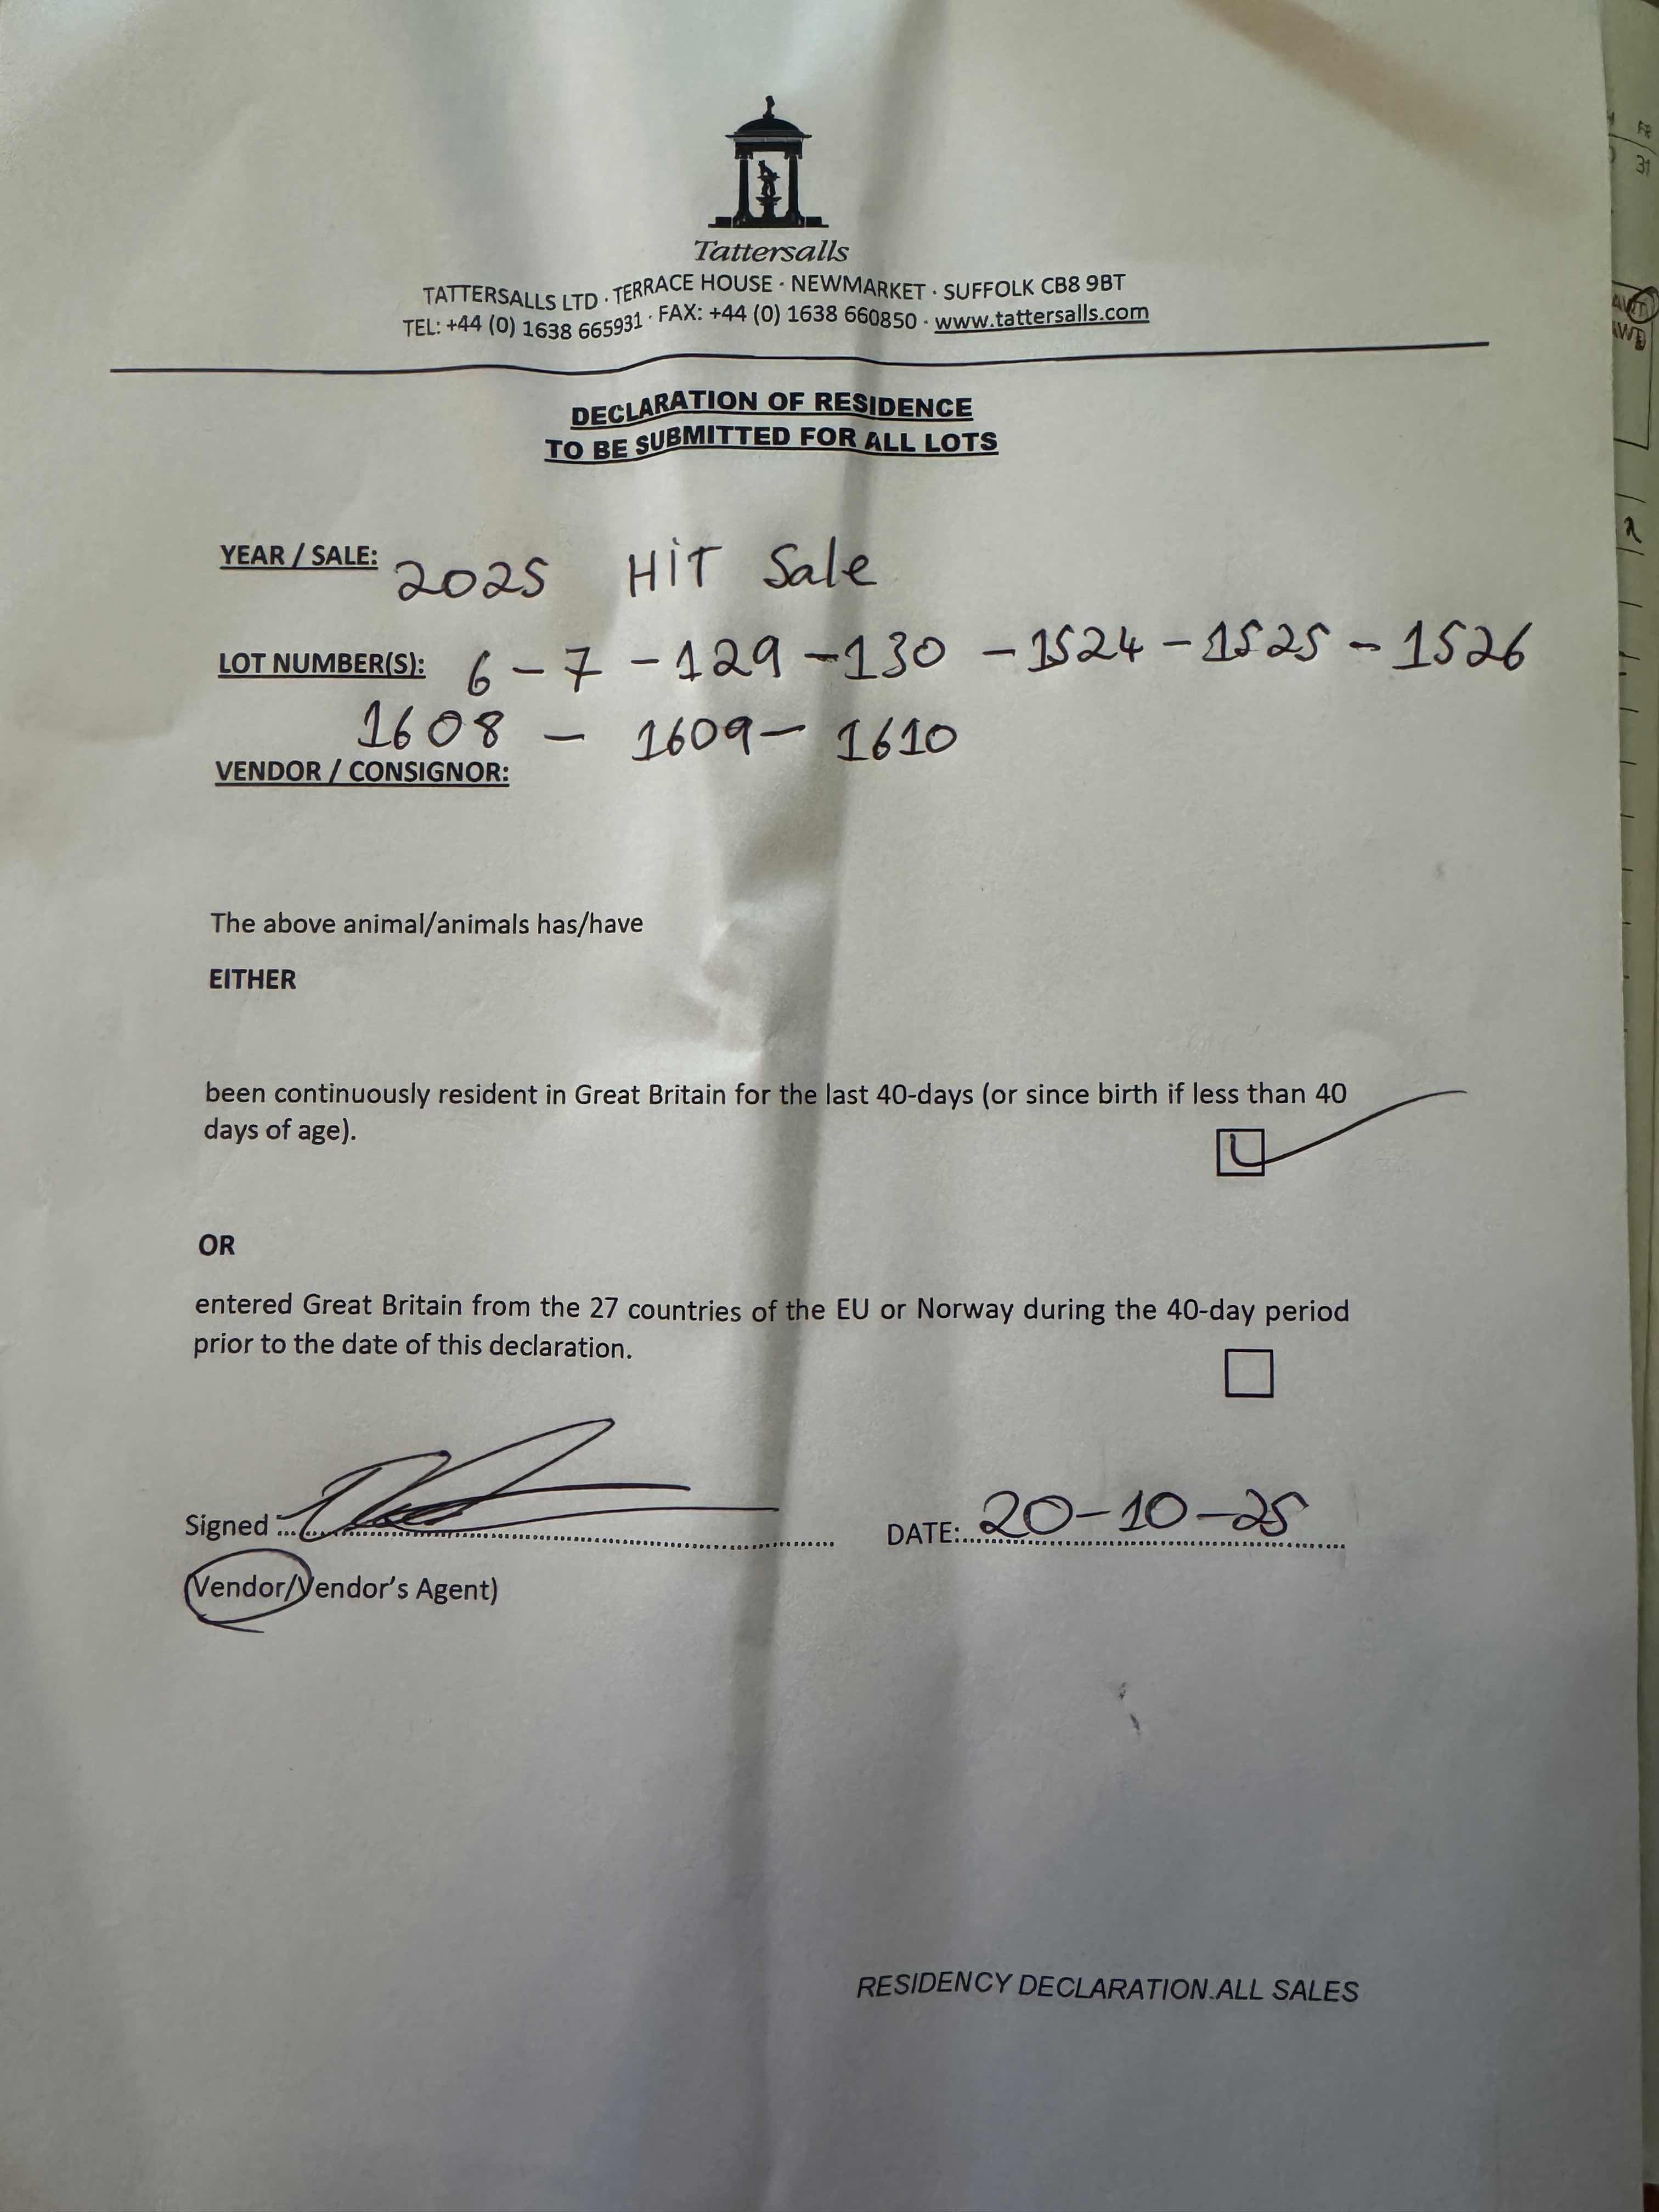 Tattersalls
TATTERSALLS LTD · TERRACE HOUSE · NEWMARKET · SUFFOLK CB8 9BT
TEL: +44 (0) 1638 665931 · FAX: +44 (0) 1638 660850 · www.tattersalls.com
DECLARATION OF RESIDENCE
TO BE SUBMITTED FOR ALL LOTS
YEAR / SALE: 2025 HIT Sale
LOT NUMBER(S): 6 - 7 - 129 - 130 - 1524 - 1525 - 1526
1608 - 1609 - 1610
VENDOR / CONSIGNOR:
The above animal/animals has/have
EITHER
been continuously resident in Great Britain for the last 40-days (or since birth if less than 40
days of age).
OR
entered Great Britain from the 27 countries of the EU or Norway during the 40-day period
prior to the date of this declaration.
Signed DATE: 20-10-25
(Vendor/Vendor's Agent)
RESIDENCY DECLARATION.ALL SALES
31